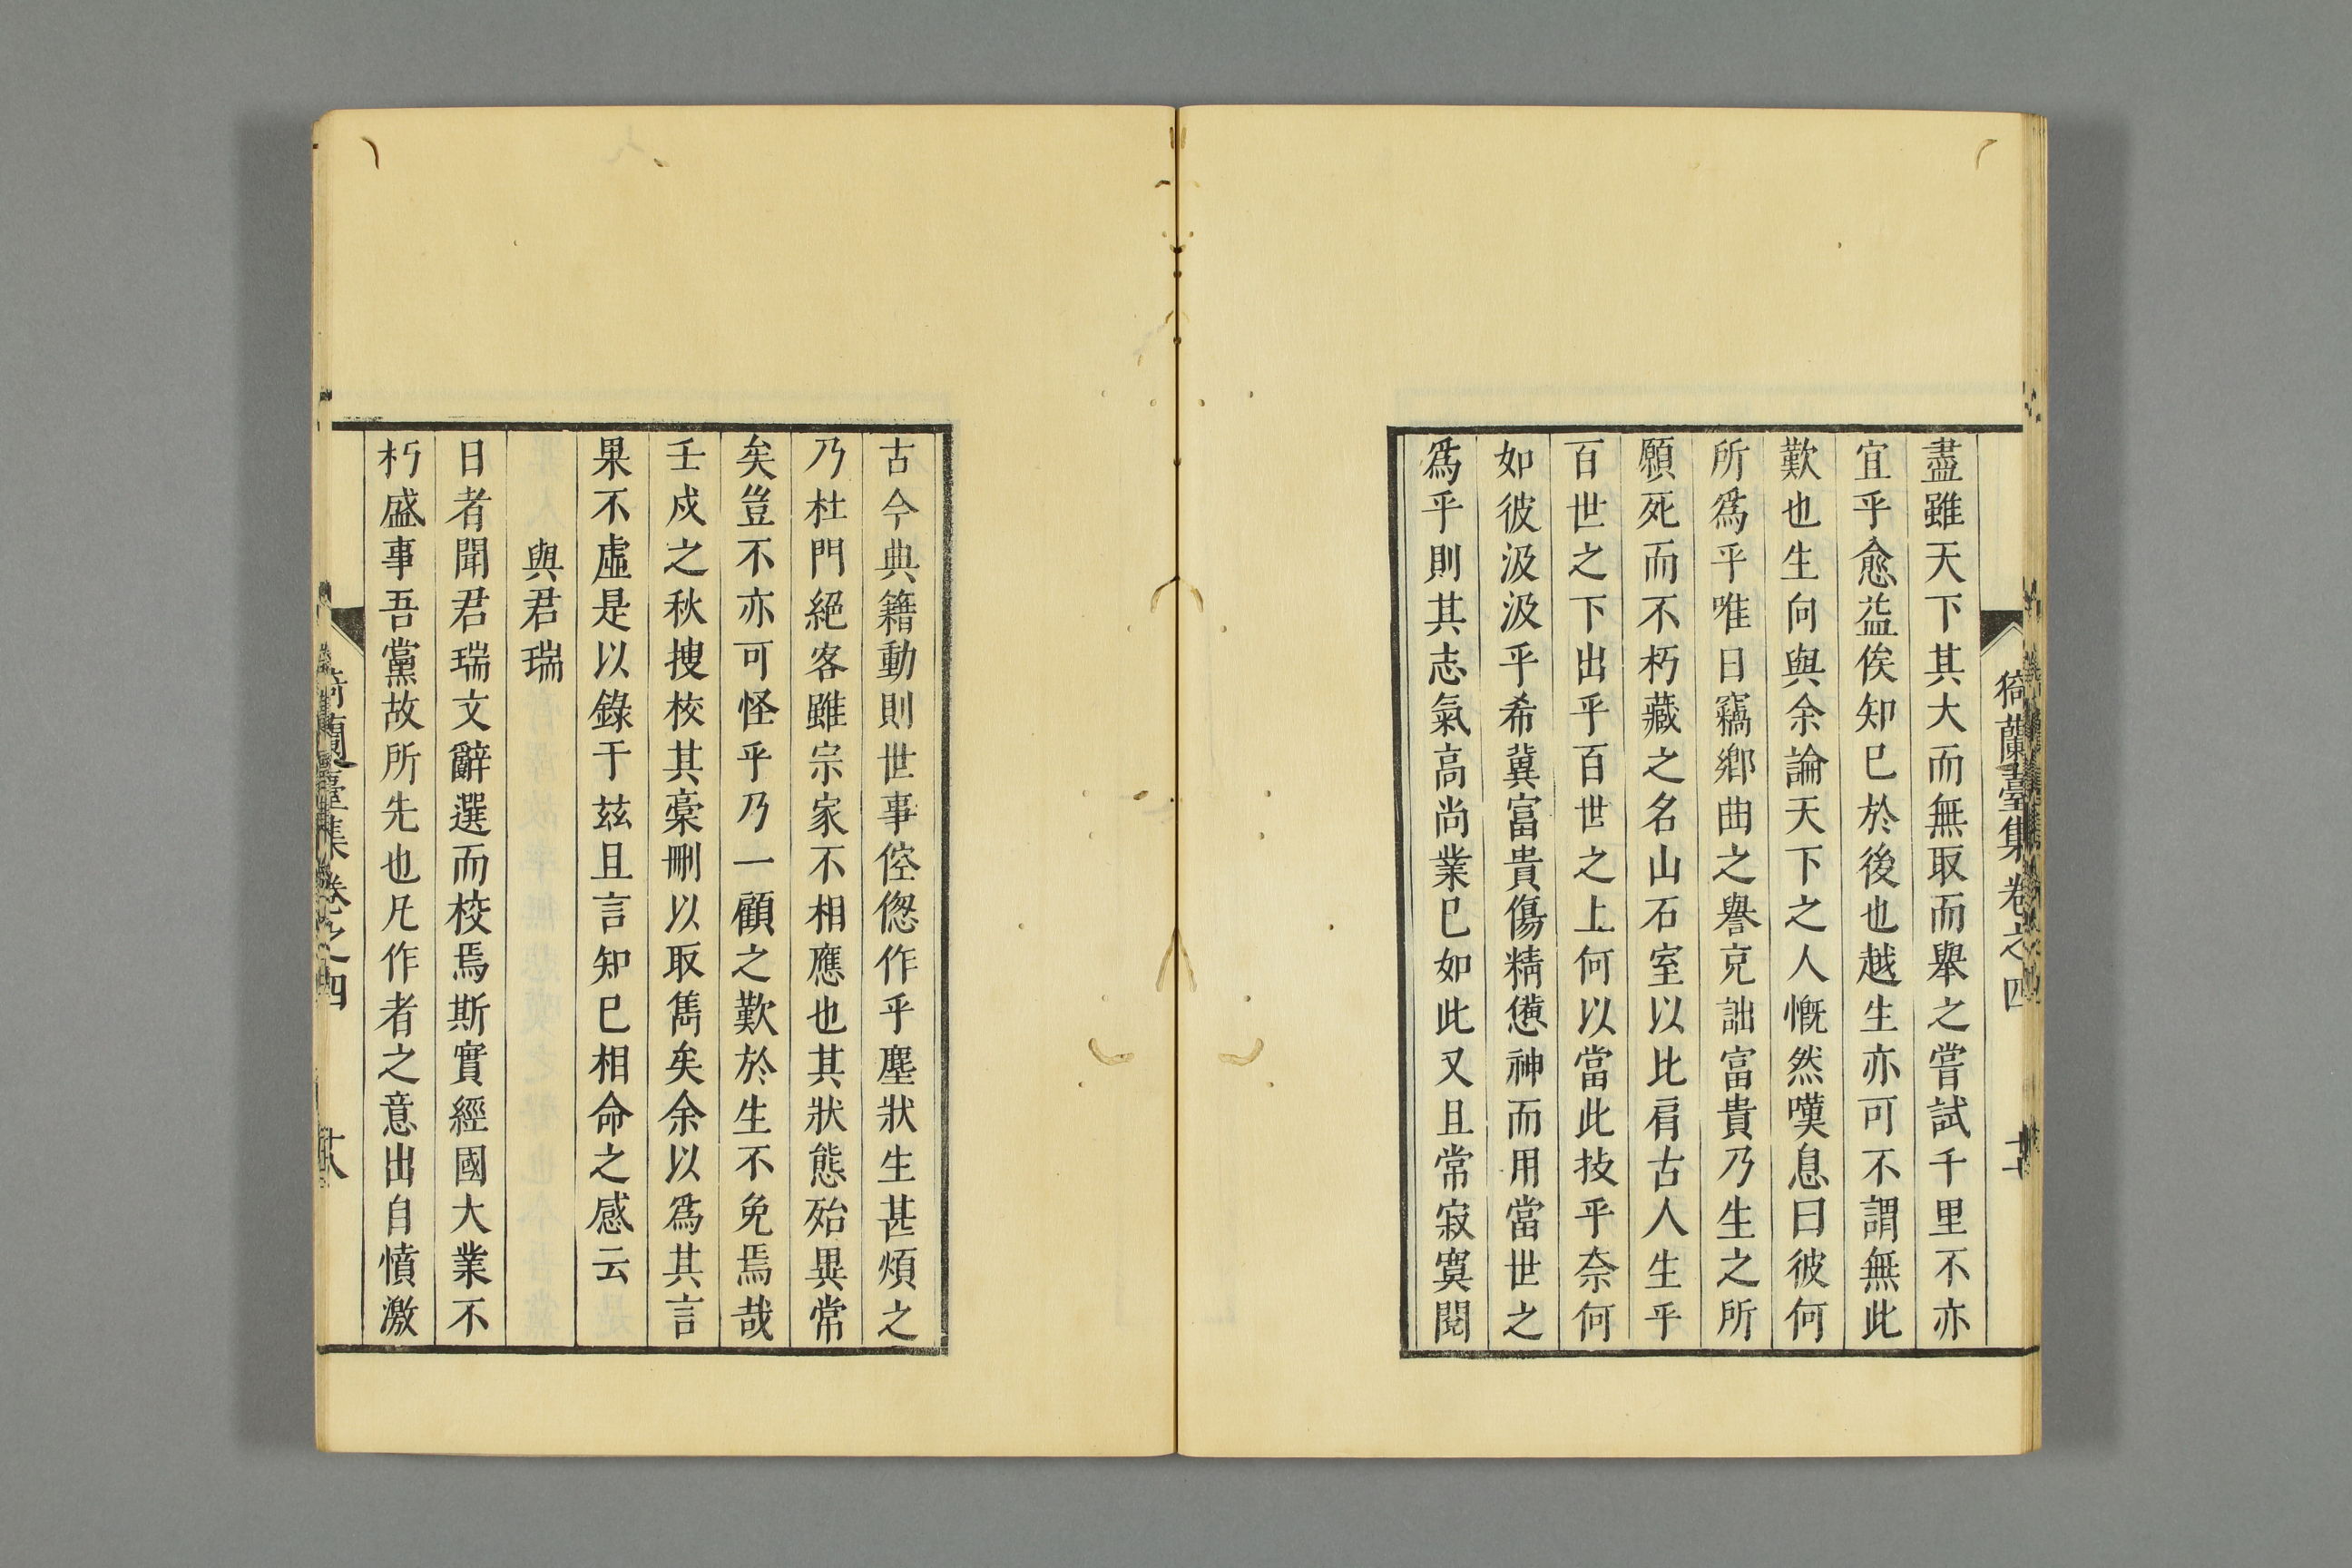 猗蘭臺集卷之四
盡雖天下其大而無取而舉之嘗試千里不亦
宜乎愈益俟知已於後也越生亦可不謂無此
歎也生向與余論天下之人慨然嘆息曰彼何
所爲乎唯日竊鄉曲之譽克詘富貴乃生之所
願死而不朽藏之名山石室以比肩古人生乎
百世之下出乎百世之上何以當此技乎奈何
如彼汲汲乎希冀富貴傷精憊神而用當世之
爲乎則其志氣高尚業已如此又且常寂寞閱
古今典籍動則世事倥偬作乎塵狀生甚煩之
乃杜門絕客雖宗家不相應也其狀態殆異常
矣豈不亦可怪乎乃一顧之歎於生不免焉哉
壬戌之秋搜校其稾刪以取雋矣余以爲其言
果不虛是以錄于玆且言知已相命之感云
與君瑞
日者聞君瑞文辭選而校焉斯實經國大業不
朽盛事吾黨故所先也凡作者之意出自憤激
猗蘭臺集卷之四